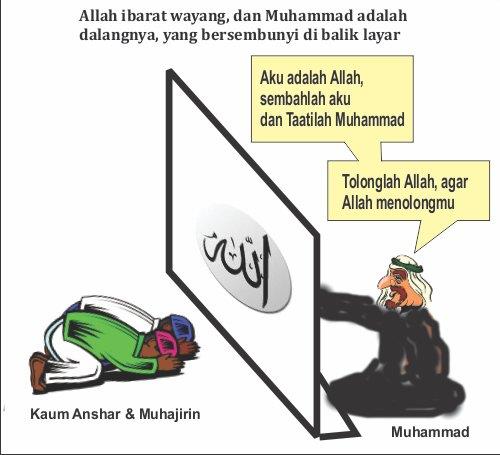 Allah ibarat wayang, dan Muhammad adalah
dalangnya, yang bersembunyi di balik layar
Aku adalah Allah,
sembahlah aku
dan Taatilah Muhammad
Tolonglah Allah, agar
Allah menolongmu
الله
Kaum Anshar & Muhajirin
Muhammad